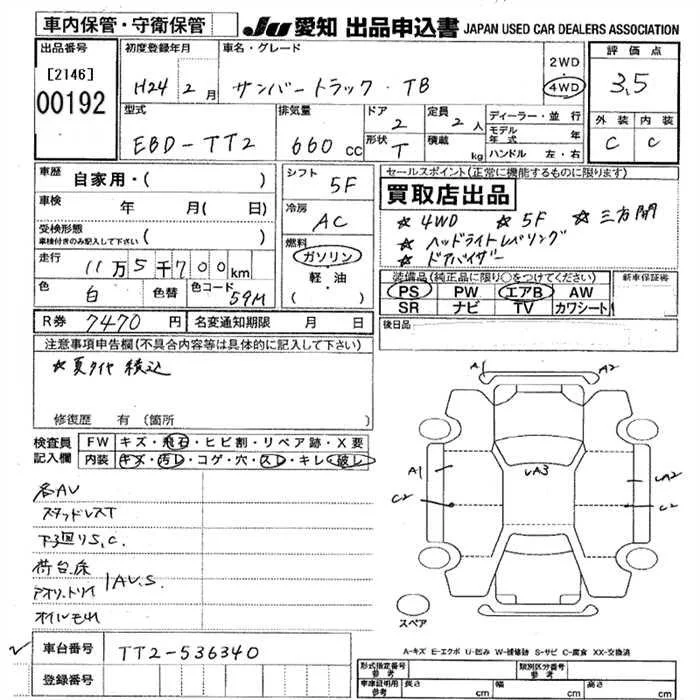 車内保管・守衛保管
JU 愛知 出品申込書 JAPAN USED CAR DEALERS ASSOCIATION
出品番号
[2146]
00192
初度登録年月
H24 2 月
車名・グレード
サンバートラック・TB
2WD
4WD
評価点
3,5
型式
EBD-TT2
排気量
660 cc
ドア
2
形状
T
定員
2 人
積載
kg
ディーラー・並行
モデル年式 年
ハンドル 左・右
外装 内装
C C
車歴
自家用・( )
車検 年 月( 日)
受検形態
車検付きのみ記入して下さい ( )
走行
11万5千700km
色
白
色替
色コード
59M
シフト
5F
冷房
AC
燃料
ガソリン
軽・油
( )
セールスポイント(正常に機能するものに限ります)
買取店出品
☆ 4WD ☆ 5F ☆ 三方開
☆ ヘッドライトレベリング
☆ ドアバイザー
装備品(純正品に限り○をつけてください)
PS PW エアB AW
SR ナビ TV カワシート
新車保証書
後日品
R券 7470 円 名変通知期限 月 日
注意事項申告欄(不具合内容等は具体的に記入して下さい)
☆夏タイヤ積込
修復歴 有 (箇所
検査員記入欄
FW キズ・飛石・ヒビ割・リペア跡・X要
内装 キズ・汚レ・コゲ・穴・スレ・キレ・破レ
各AU
スタッドレスT
下回りS,C.
荷台床
アオリ,トリイ
AU.S.
オイルモレ
A1 A2
A1 UA3 UA2
C2 C2
スペア
A-キズ E-エクボ U-凹み W-補修跡 S-サビ C-腐食 XX-交換済
車台番号 TT2-536340
登録番号
形式指定番号 類別区分番号
車庫証明用参考 長さ cm 幅 cm 高さ cm